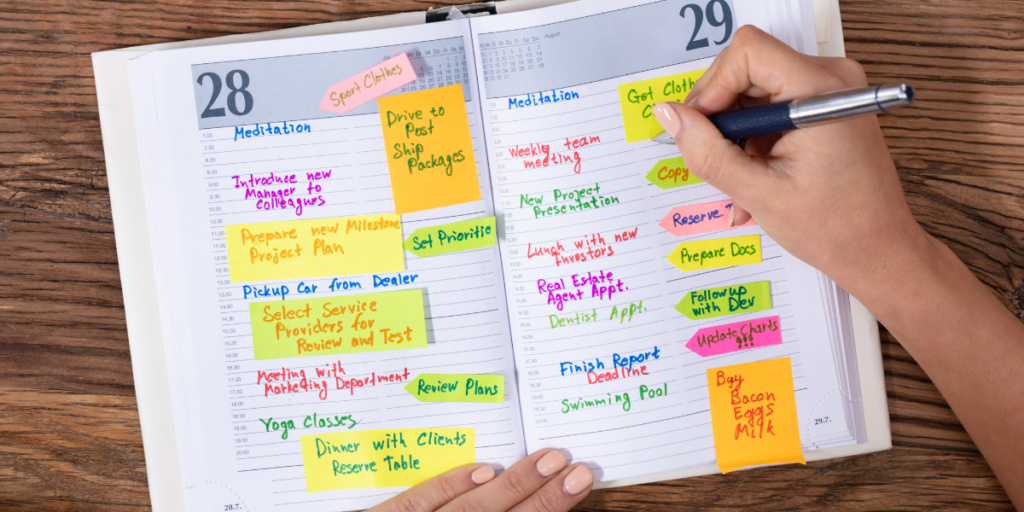 28
Sport Clothes
Meditation
Drive to
Post
Ship
Packages
Introduce new
Manager to
Colleagues
Prepare new Milestone
Project Plan
Set Prioritie
Pickup Car from Dealer
Select Service
Providers for
Review and Test
Meeting with
Marketing Department
Review Plans
Yoga Classes
Dinner with Clients
Reserve Table
28.7.
August
29
Meditation
Get
Weekly team
meeting
Copy
New Project
Presentation
Reserve
Lunch with new
Investors
Prepare Docs
Real Estate
Agent Appt.
Followup
with Dev
Dentist Appt.
Update Charts
!!!
Finish Report
Deadline
Swimming Pool
Buy
Bacon
Eggs
Milk
29.7.